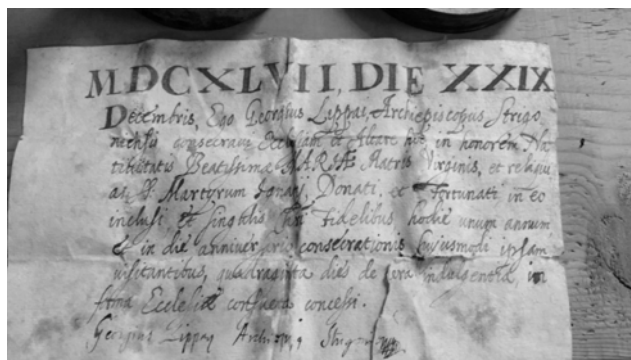 MDCXLVII, DIE XXIX
Decembris, Ego Georgius Lippai, Archiepiscopus Strigo
niensis consecravi Ecclesiam et Altare hoc, in honorem Na
tivitatis Beatissimæ MARIÆ Matris Virginis, et reliqui
as SS. Martyrum Donati, et Fortunati in eo
inclusi et singulis Fidelibus hodie unum annum
et in die anniversario consecrationis hujusmodi ipsam
visitantibus, quadraginta dies de vera indulgentia, in
forma Ecclesiæ consueta concessi.
Georgius Lippay